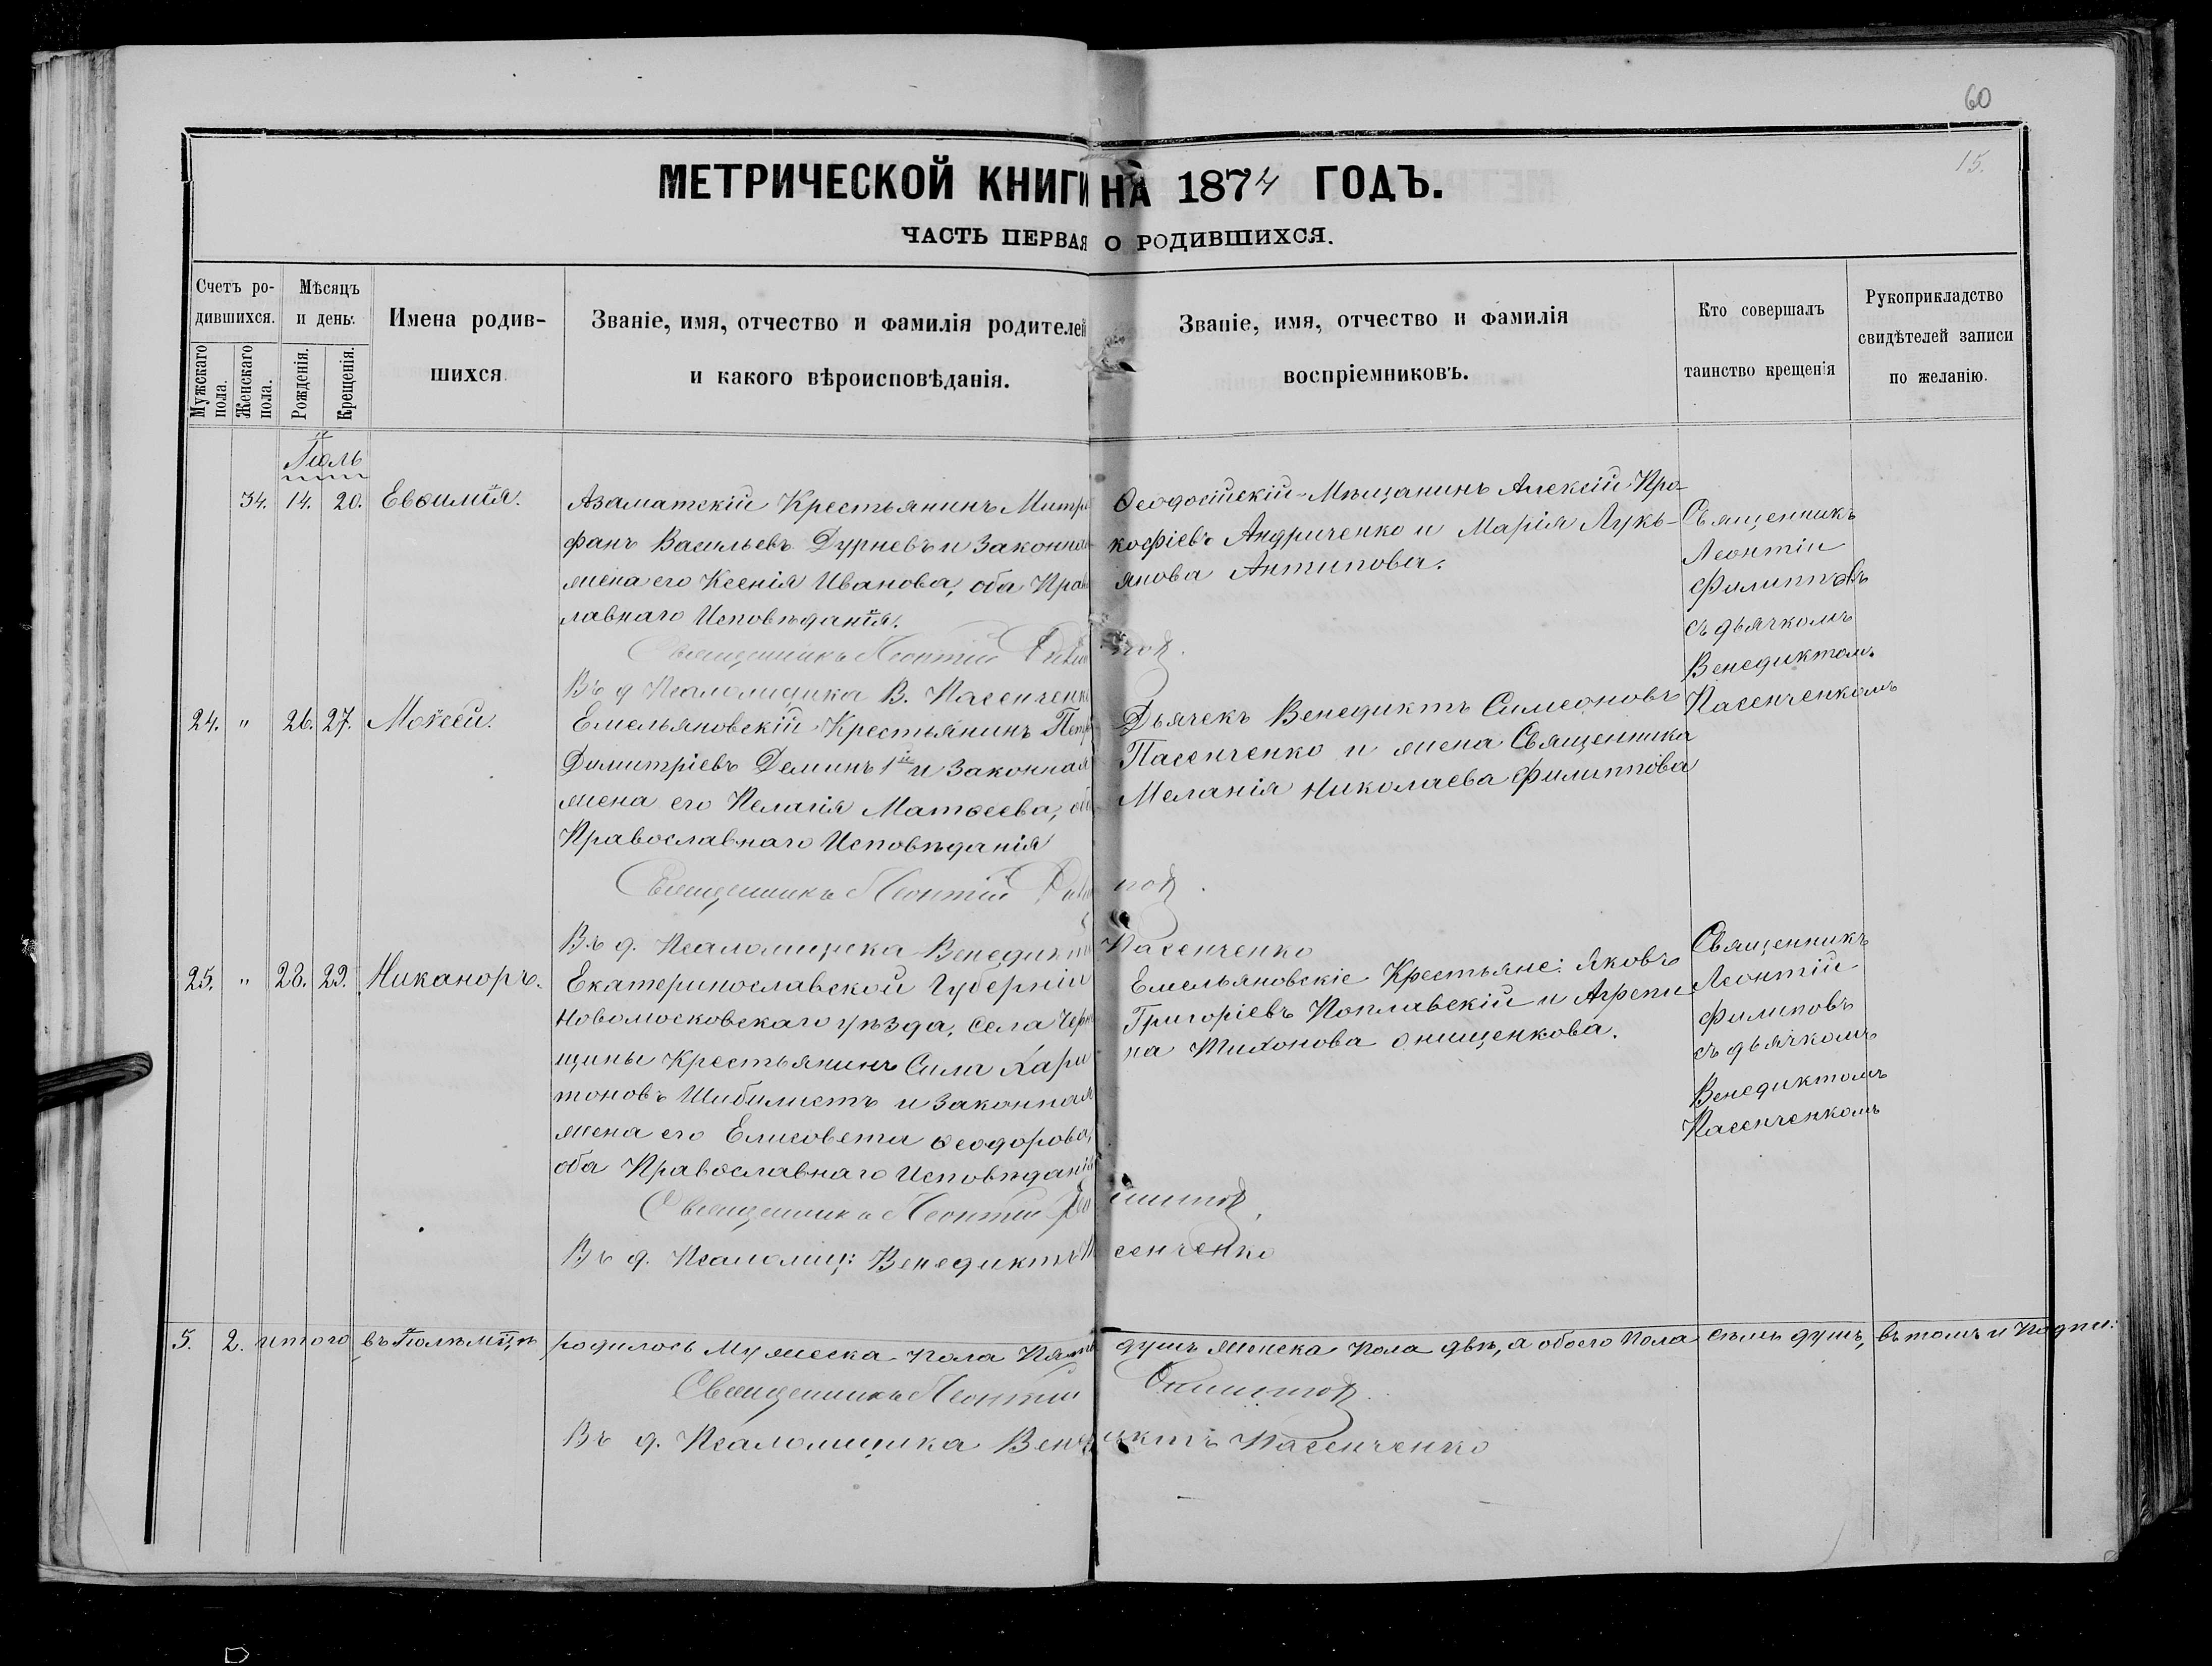 60
15.
МЕТРИЧЕСКОЙ КНИГИ НА 1874 ГОДЪ.
ЧАСТЬ ПЕРВАЯ О РОДИВШИХСЯ.
Счетъ ро-
дившихся.
Мужскаго пола.
Женскаго пола.
Мѣсяцъ
и день.
Рожденія.
Крещенія.
Имена родив-
шихся
Званіе, имя, отчество и фамилія родителей
и какого вѣроисповѣданія.
Званіе, имя, отчество и фамилія
воспріемниковъ.
Кто совершалъ
таинство крещенія
Рукоприкладство
свидѣтелей записи
по желанію.
Іюль
34. 14. 20. Евѳимія.
Азаматскій Крестьянинъ Митро
фанъ Васильевъ Дурневъ и Законная
жена его Ксенія Иванова, оба Право
лавнаго Исповѣданія.
Священникъ Леонтій Филиппов.
Въ д Псаломщика В. Пасенченко
Ѳеодосійскій Мѣщанинъ Алексій Про-
кофіевъ Андриченко и Марія Лукь-
янова Антипова.
Священникъ
Леонтій
Филипповъ
съ дьячкомъ
Венедиктомъ
Пасенченкомъ
24. " 26. 27. Моѵсей.
Емельяновскій Крестьянинъ Петръ
Димитріевъ Деминъ 1й и Законная
жена его Пелагія Матѳеева, оба
Православнаго Исповѣданія
Священникъ Леонтій Филиппов.
Въ д. Псаломщика Венедиктъ Пасенченко
Дьячекъ Венедиктъ Симеоновъ
Пасенченко и жена Священника
Меланія Николаева Филиппова
25. " 28. 29. Никаноръ.
Екатеринославской Губерніи
Новомосковскаго уѣзда, села Черне
щины Крестьянинъ Сила Хари
тоновъ Шибилистъ и Законная
жена его Елисовета Ѳеодорова,
оба Православнаго Исповѣданія
Священникъ Леонтій Филиппов.
Въ д. Псаломщ: Венедиктъ Пасенченко
Емельяновскіе Крестьяне: Яковъ
Григоріевъ Поплавскій и Агрепи
на Тихонова Онищенкова.
Священникъ
Леонтій
Филиповъ
съ дьячкомъ
Венедиктомъ
Пасенченкомъ
5. 2. итого въ Іюлѣ мцѣ родилось Мужеска пола Пять душъ женска пола двѣ, а обоего пола семь душъ, въ томъ и подпи:
Священникъ Леонтій Филиппов.
Въ д. Псаломщика Венедиктъ Пасенченко